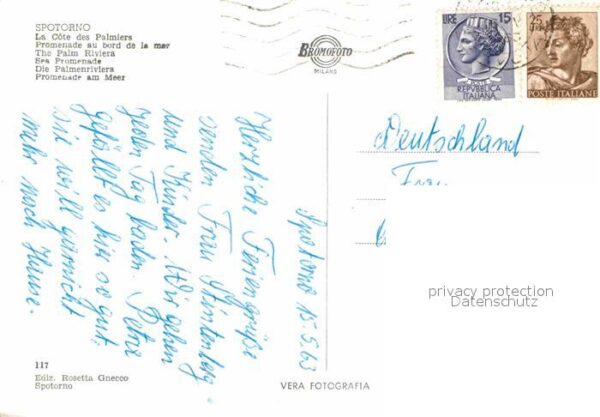 SPOTORNO
La Côte des Palmiers
Promenade au bord de la mer
The Palm Riviera
Sea Promenade
Die Palmenriviera
Promenade am Meer
BROMOFOTO
MILANO
LIRE 15
POSTE
REPVBBLICA
ITALIANA
25
POSTE ITALIANE
Deutschland
Frau
Spotorno 15.5.63
Herzliche Feriengrüße
senden Frau
und Kinder. Wir gehen
jeden Tag baden. Petra
gefällt es hier so gut
sie will garnicht
mehr nach Hause.
privacy protection
Datenschutz
117
Ediz. Rosetta Gnecco
Spotorno
VERA FOTOGRAFIA